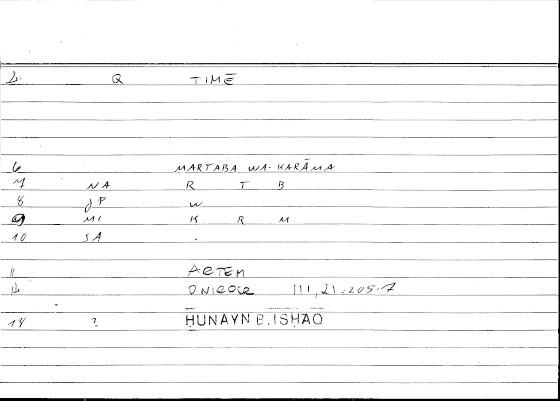 2. Q TIMĒ
6 MARTABA WA-KARĀMA
7 NA R T B
8 JP W
9 MI K R M
10 SA .
11 ARTEM
12 III, 21-205.7
14 ? HUNAYN B. ISHAQ